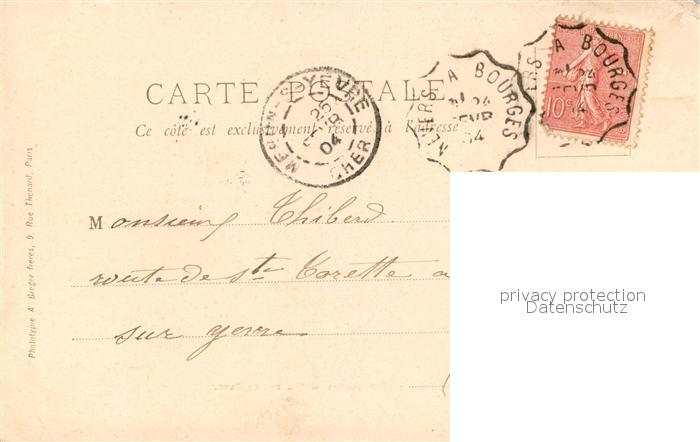 CARTE POSTALE
Ce côté est exclusivement réservé à l'adresse
MEHUN-S-YEVRE
25
04
CHER
NEVERS A BOURGES
24
04
A BOURGES
10c
Monsieur Thiberd
route de Ste Torette a
sur yevre
Phototypie A Berger frères, 9, Rue Thenard, Paris
privacy protection
Datenschutz